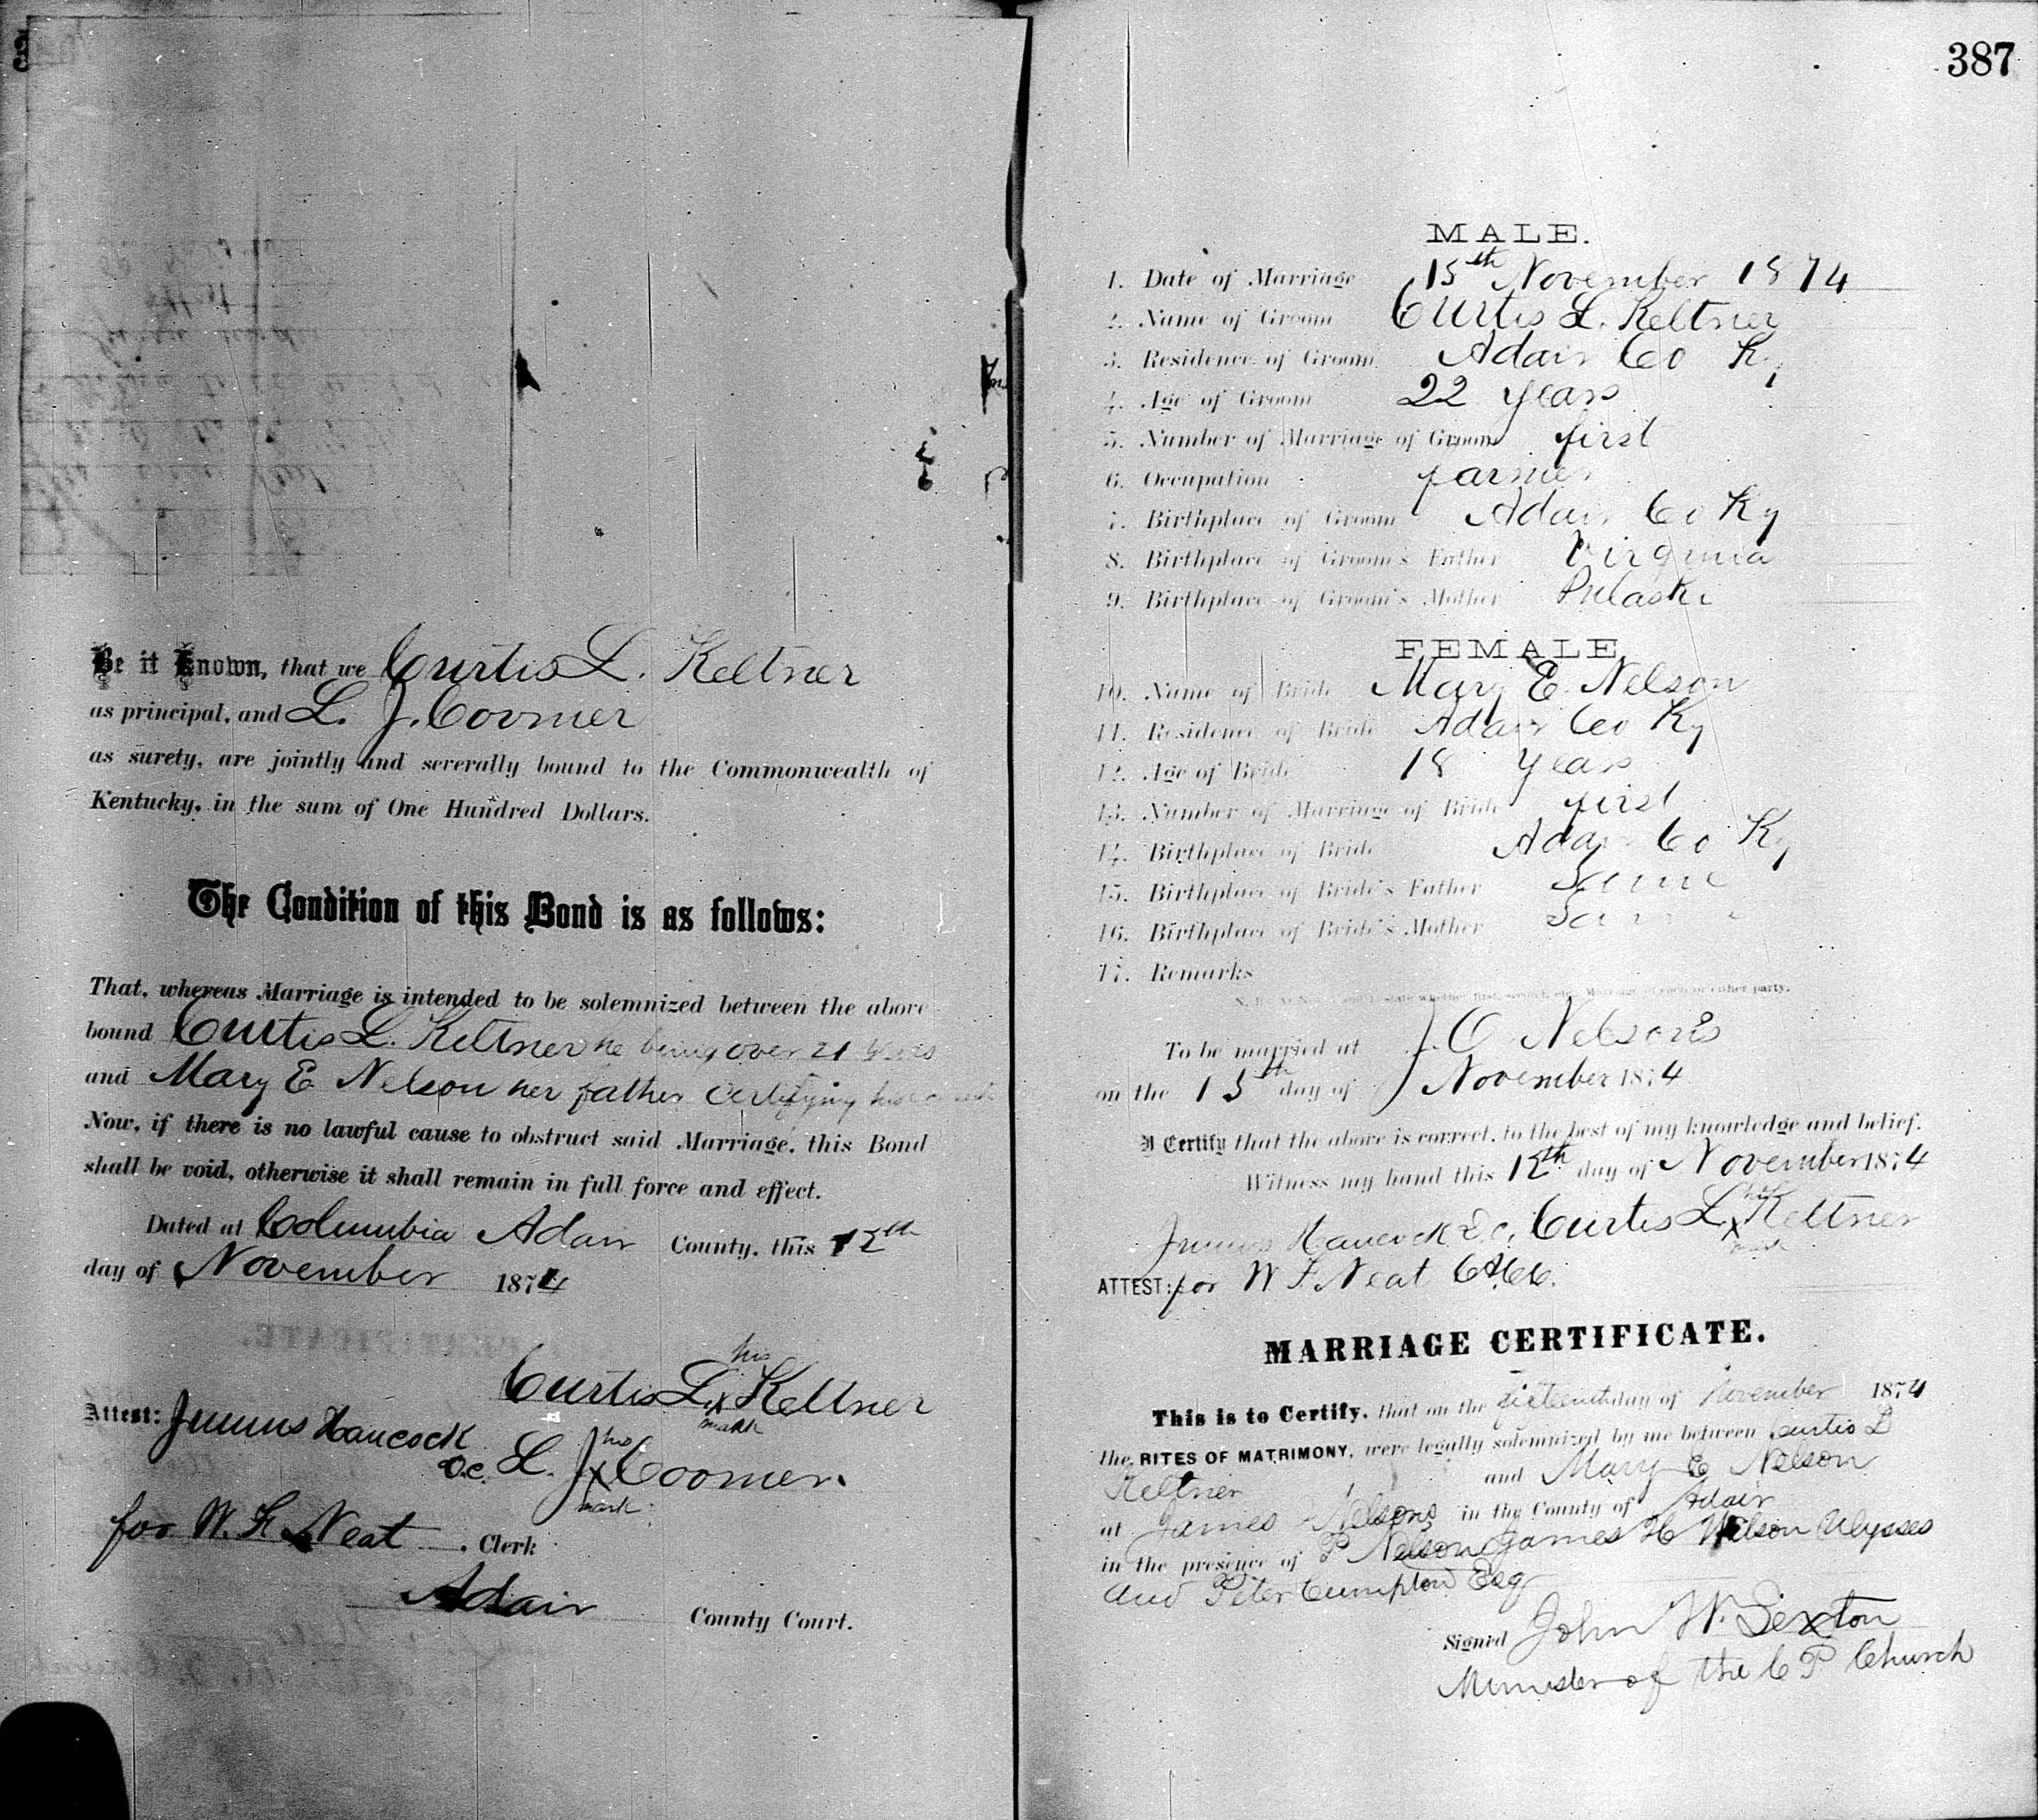 387
Be it Known, that we Curtis L. Keltner
as principal, and L. J. Coomer
as surety, are jointly and severally bound to the Commonwealth of
Kentucky, in the sum of One Hundred Dollars.
The Condition of this Bond is as follows:
That, whereas Marriage is intended to be solemnized between the above
bound Curtis L. Keltner he being over 21 years
and Mary E Nelson her father certifying his
Now, if there is no lawful cause to obstruct said Marriage, this Bond
shall be void, otherwise it shall remain in full force and effect.
Dated at Columbia Adair County, this 12th
day of November 1874
his
Curtis L x Keltner
mark
Attest: Junius Hancock
D.C.
his
L. J x Coomer.
mark
for W. F. Neat, Clerk
Adair County Court.
MALE.
1. Date of Marriage 15th November 1874
2. Name of Groom Curtis L. Keltner
3. Residence of Groom Adair Co Ky
4. Age of Groom 22 years
5. Number of Marriage of Groom first
6. Occupation farmer
7. Birthplace of Groom Adair Co Ky
8. Birthplace of Groom's Father Virginia
9. Birthplace of Groom's Mother Pulaski
FEMALE
10. Name of Bride Mary E. Nelson
11. Residence of Bride Adair Co Ky
12. Age of Bride 18 years
13. Number of Marriage of Bride first
14. Birthplace of Bride Adair Co Ky
15. Birthplace of Bride's Father Same
16. Birthplace of Bride's Mother Same
17. Remarks
To be married at J. C Nelson's
on the 15th day of November 1874
I Certify that the above is correct, to the best of my knowledge and belief.
Witness my hand this 12th day of November 1874
his
Junius Hancock D.C. Curtis L x Keltner
mark
ATTEST: for W F. Neat
MARRIAGE CERTIFICATE.
This is to Certify, that on the fifteenth day of November 1874
the RITES OF MATRIMONY, were legally solemnized by me between Curtis L
Keltner and Mary E Nelson
at James Nelsons in the County of Adair
in the presence of P Nelson James H Wilson Ulysses
and Peter Cumpton Esq
Signed John W. Sexton
Minister of the C P Church